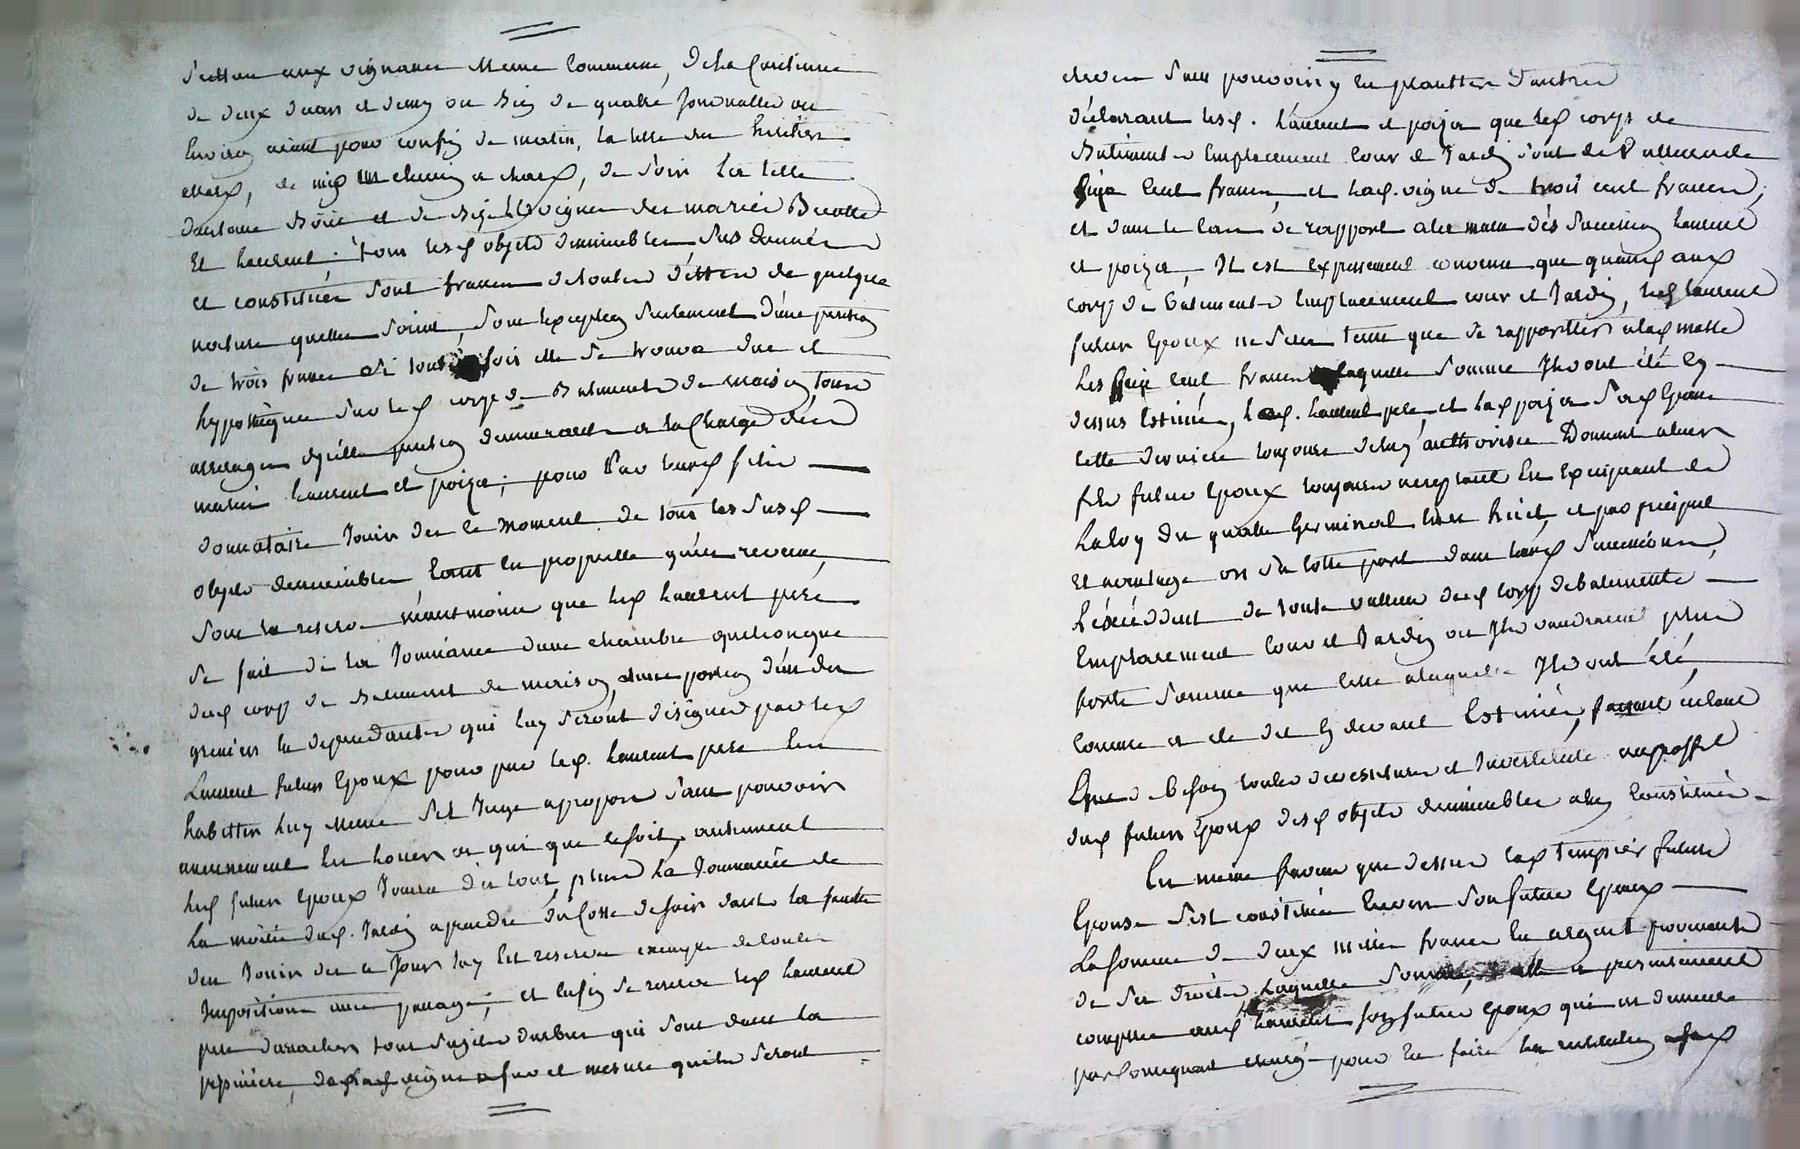 aux vignaux meme commune, de la contenue
de deux et demy ou de quatre journalles ou
environ pour confin de matin, la terre des heritiers
de chemin a chars, de soir la terre
et de vignes des mariés
et Laurent; tous lesd objets d'immeubles sus donnés
et constitués sont francs de toutes dettes de quelque
nature quelles soint, sous exception seulement d'une pention
de trois francs si toute fois elle se trouve due et
hypothèquée sur lesd corps de batiments de maison, tous
arrerages de quelle pention demeurant a la charge des
mariés Laurent et poize; pour par leurd fils
donnataire jouir des ce moment de tous les susd
objets d'immeubles tant en propriette qu'en revenu,
sous la reserve néantmoins que led Laurent père
se fait de la jouissance d'une chambre quelconque
dud corp de batiment de maison, d'une portion d'un des
greniers en dependants qui luy seront désignés par led
Laurent futur epoux pour par led. Laurent père les
habitter luy meme s'il juge apropos sans pouvoir
aucunement les louer a qui que ce soit, autrement
lesd futurs epoux jouira du tout, plus la jouissance de
la moitié dud. jardin a prendre du cotté de soir dont la
jouir des ce jour luy est reservée exempte de toutes
impositions avec passage; et enfin se reserve led Laurent
père d'arracher tous d'arbres qui sont dans la
pepiniere, de lad vigne a fur et mesure qu'ils seront
sans pouvoir y en plantter d'autres
déclarant lesd. Laurent et poize que lesd corps de
batiments emplacement cour et jardin sont de valleur de
cent francs, et lad. vigne de trois cent francs;
et dans le cas de rapport a la masse dés succession Laurent
et poize. Il est expressement convenu que quand aux
corp de batiments emplacement cour et jardin, led Laurent
futur epoux ne sera tenu que de rapportter alad masse
les cent francs laquelle somme ils ont été cy
dessus estimés, led. Laurent père, et lad poize sad epouse
cette derniere toujours de luy authorisée donnent aleur
fils futur epoux toujours acceptant en expliquant de
la loy du quatre germinal an huit, et par préciput
et avantage ou sa cotte part dans leurs successions,
l'éxcéddent de toute valleur desd corp de batiments
emplacement cour et jardin ou ils vaudraient plus
forte somme que celle alaquelle ils ont été,
comme a été dit cy devant estimés, faisant
besoin toutes et investiture au proffit
dud futur epoux desd objets d'immeubles a luy constitués
En meme faveur que dessus lad future
epouse s'est constituée envers son futur epoux
la somme de deux mille francs en argent provenante
de ses droits, laquelle somme elle a presentement
comptée aud Laurent son futur epoux qui en demeure
par consequent chargé pour en faire la restitution